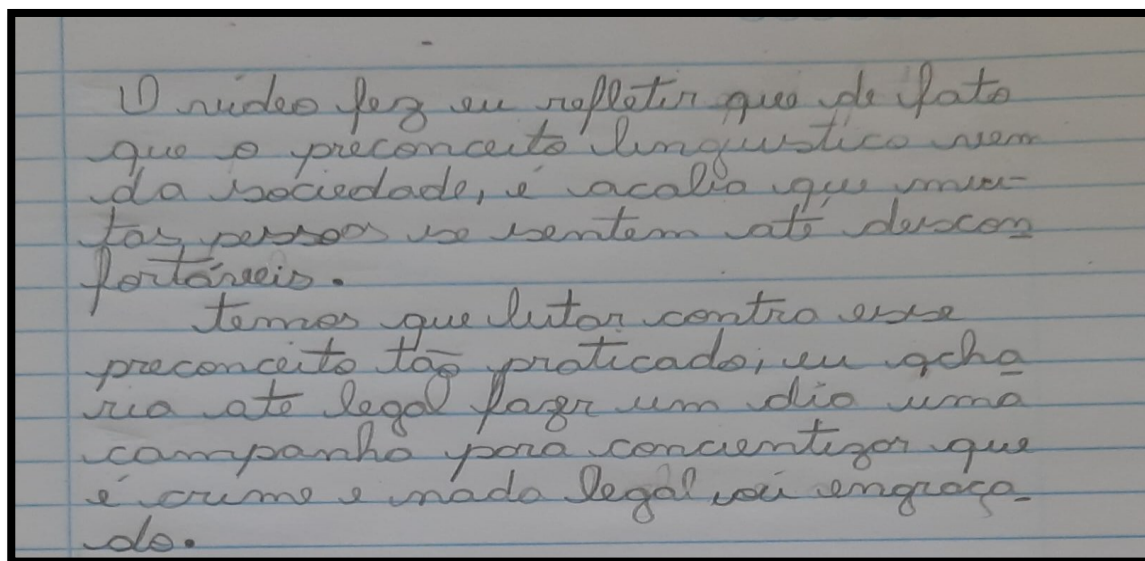 O video fez eu refletir que de fato
que o preconceito linguistico vem
da sociedade, e acaba que mui-
tas pessoas se sentem até descon
fortáveis.
temos que lutar contra esse
preconceito tão praticado, eu acha
ria até legal fazer um dia uma
campanha para concientizar que
é crime e nada legal, engraça-
do.